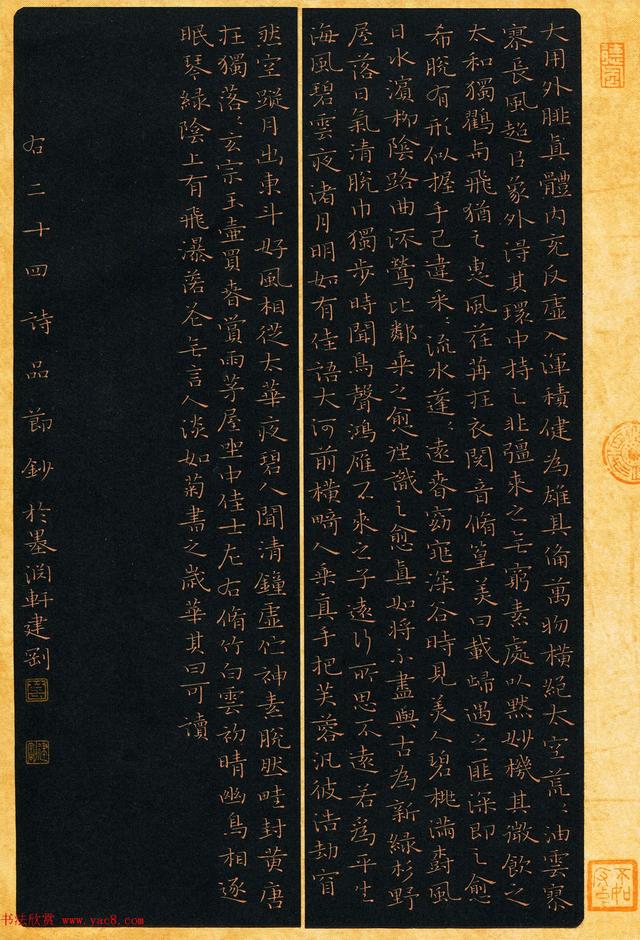 大用外腓真體內充反虛入渾積健為雄具備萬物橫絕太空荒〻油雲寥
寥長風超以象外得其環中持之非彊來之无窮素處以默妙機其微飲之
太和獨鶴與飛猶之惠風荏苒在衣閱音脩篁美曰載歸遇之匪深即之愈
希脫有形似握手已違采〻流水蓬〻遠春窈窕深谷時見美人碧桃滿樹風
日水濱柳陰路曲流鶯比鄰乘之愈往識之愈真如將不盡與古為新綠杉野
屋落日氣清脫巾獨步時聞鳥聲鴻雁不來之子遠行所思不遠若為平生
海風碧雲夜渚月明如有佳語大河前橫畸人乘真手把芙蓉汎彼浩劫窅
然空蹤月出東斗好風相從太華夜碧人聞清鐘虛佇神素脫然畦封黃唐
在獨落〻玄宗玉壺買春賞雨茅屋坐中佳士左右脩竹白雲初晴幽鳥相逐
眠琴綠陰上有飛瀑落花无言人淡如菊書之歲華其曰可讀
右二十四詩品節鈔於墨軒建剛
书法欣赏 www.yac8.com